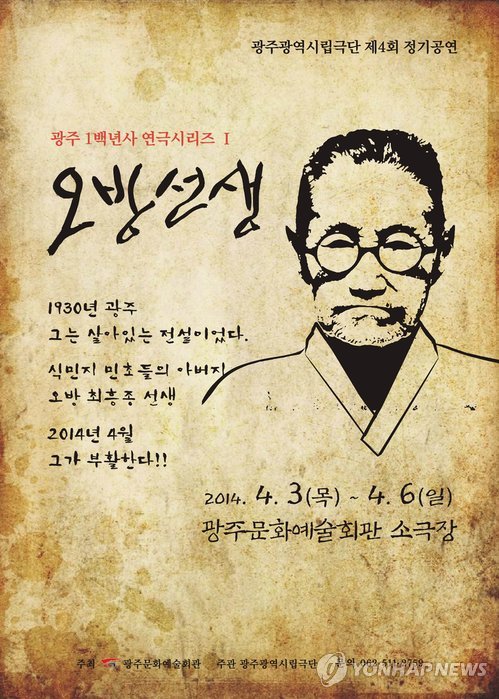 광주광역시립극단 제4회 정기공연
광주 1백년사 연극시리즈 Ⅰ
오방선생
1930년 광주
그는 살아있는 전설이었다.
식민지 민초들의 아버지
오방 최흥종 선생
2014년 4월
그가 부활한다!!
2014. 4. 3(목) ~ 4. 6(일)
광주문화예술회관 소극장
주최 광주문화예술회관 주관 광주광역시립극단
YONHAP NEWS